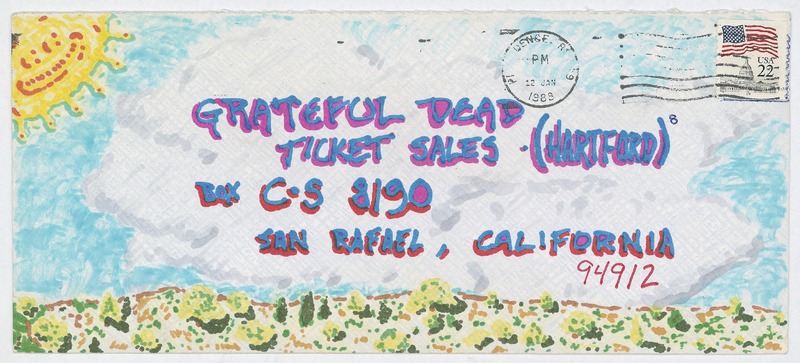 GRATEFUL DEAD
TICKET SALES - (HARTFORD) 8
BOX C-S 8190
SAN RAFAEL, CALIFORNIA
94912
PM
12 JAN
USA
22